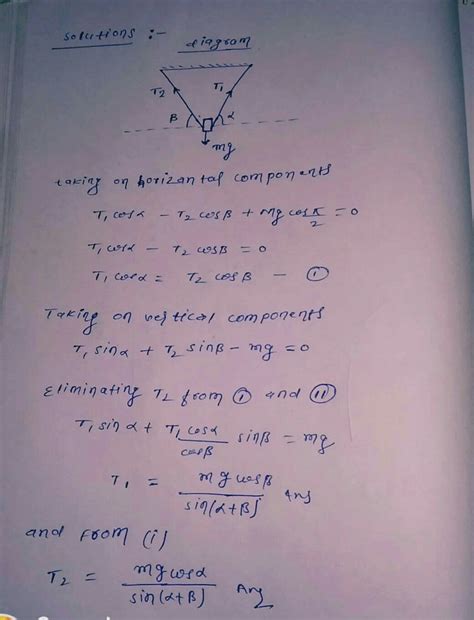 solutions :-
diagram
T2 T1
β α
mg
taking on horizantal components
T1 cosα - T2 cosβ + mg cos π/2 = 0
T1 cosα - T2 cosβ = 0
T1 cosα = T2 cosβ - (i)
Taking on vertical components
T1 sinα + T2 sinβ - mg = 0
Eliminating T2 from (i) and (ii)
T1 sinα + T1 cosα / cosβ sinβ = mg
T1 = mg cosβ / sin(α+β) Ans
and From (i)
T2 = mg cosα / sin(α+β) Ans